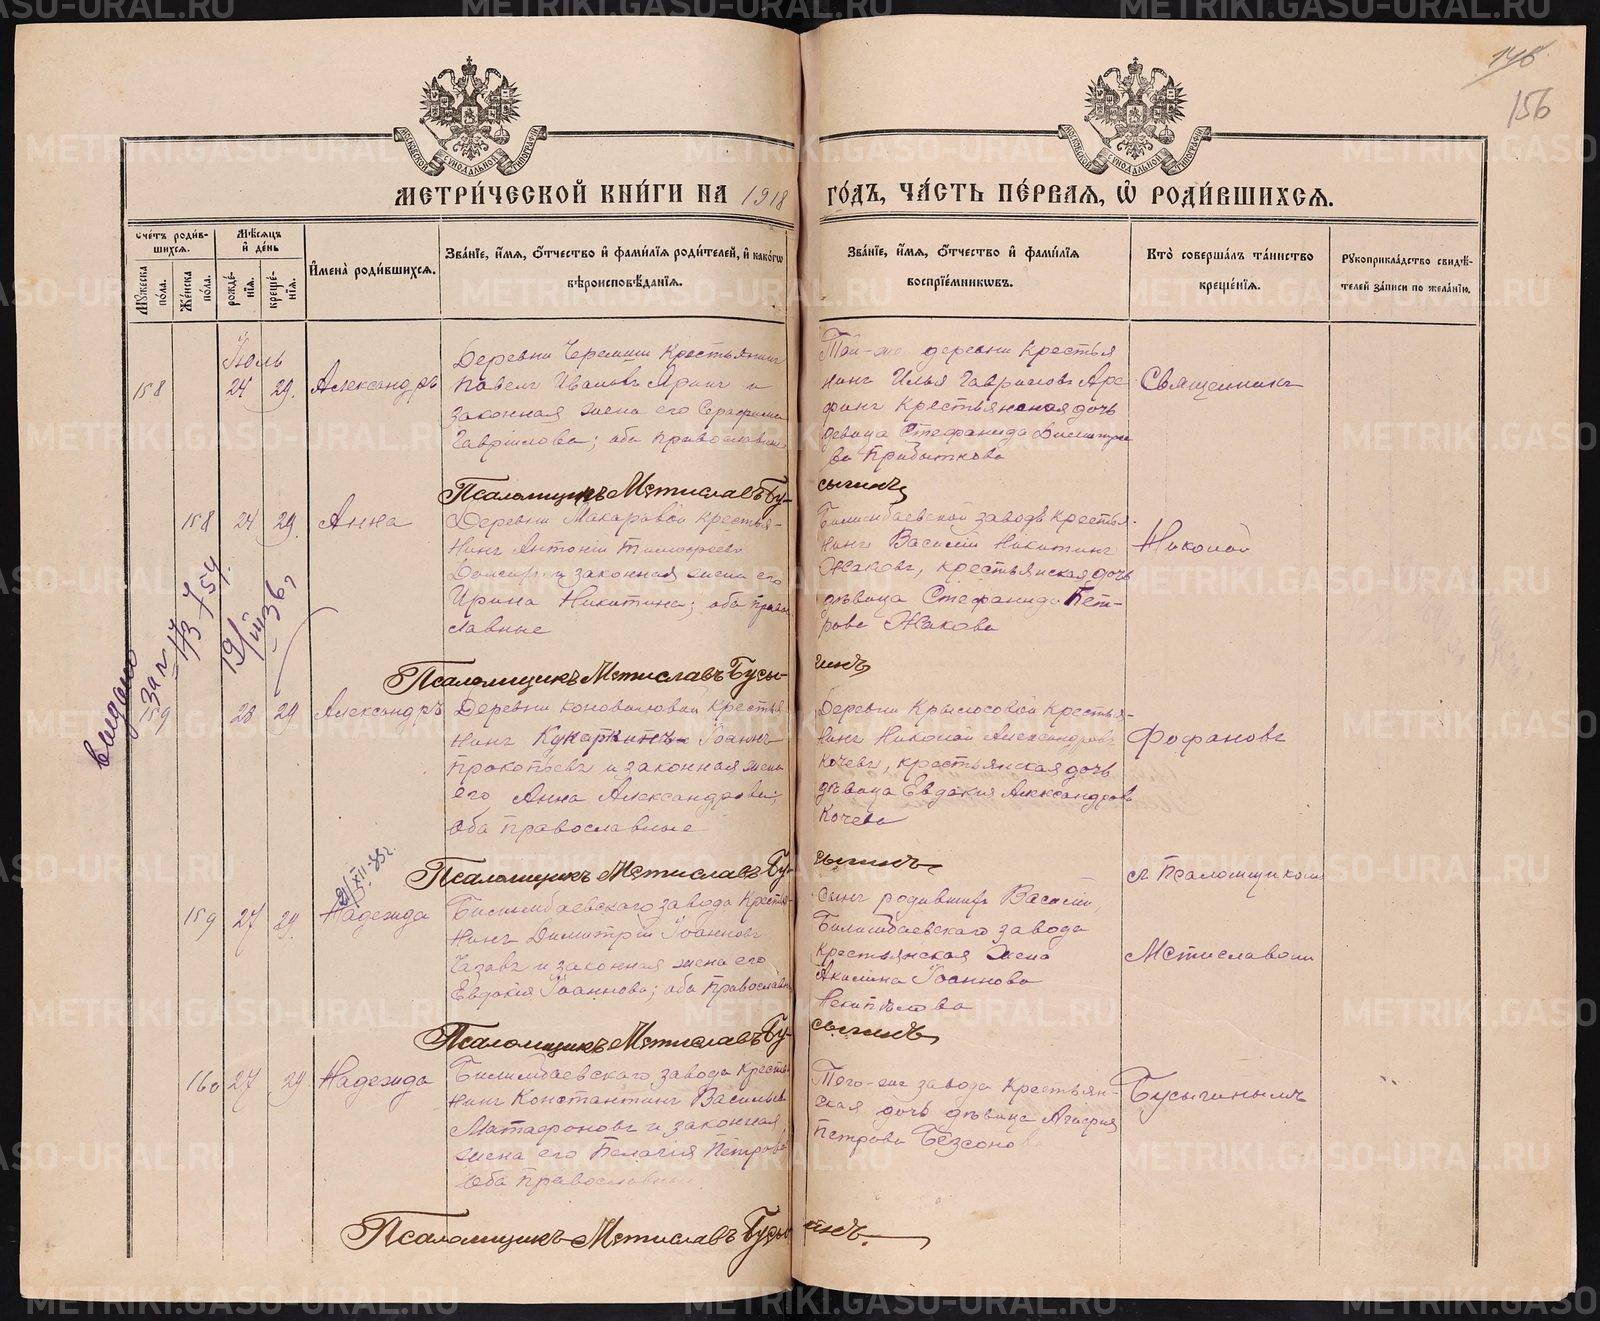 146
156
МЕТРИ́ЧЕСКОЙ КНИ́ГИ НА 1918 ГО́ДЪ, ЧА́СТЬ ПЕ́РВАЯ, Ѽ РОДИ́ВШИХСЯ.
Счéтъ роди́вшихся.
Мѣ́сяцъ и́ дéнь
Мꙋ́жеска по́ла.
Жéнска по́ла.
рождéнїя.
крещéнїя.
И҆мена̀ роди́вшихся.
Зва́нїе, и҆́мѧ, ѻ҆́тчество и҆ фами́лїѧ роди́телей, и҆ како́гѡ вѣроисповѣ́данїѧ.
Зва́нїе, и҆́мѧ, ѻ҆́тчество и҆ фами́лїѧ воспрїе́мникѡвъ.
Кто̀ соверша́лъ та́инство крещéнїѧ.
Рꙋкоприкла́дство свидѣ́телей за́писи по жела́нїю.
Іюль
158
24
29.
Александръ
Деревни Черемши Крестьянинъ
Павелъ Ивановъ Яринъ и
законная жена его Серафима
Гаврилова; оба православные
Той-же деревни крестья
нинъ Илья Гавриловъ Аре
финъ крестьянская дочь
девица Стефанида Димитріе
ва Прибыткова
Священникъ
Псаломщикъ Мстиславъ Бусыгинъ
158
24
29.
Анна
Деревни Макаровой крестья-
нинъ Антоній Тимофеевъ
законная жена его
Ирина Никитина; оба право
славные
Билимбаевской завода крестья-
нинъ Василій Никитинъ
Жаковъ, крестьянская дочь
дѣвица Стефанида Пет-
рова Жакова
Николай
Псаломщикъ Мстиславъ Бусыгинъ
выдано
19/III 36
159
28
29
Александръ
Деревни Коноваловой Крестья
нинъ Кукаркинъ Іоаннъ
Прокопьевъ и законная жена
его Анна Александрова;
оба православные
Деревни Крылосовой Крестья-
нинъ Николай Александровъ
Кочевъ, крестьянская дочь
дѣвица Евдокія Александрова
Кочева
Фофановъ
Псаломщикъ Мстиславъ Бусыгинъ
159
27
29.
Надежда
Билимбаевскаго завода Кресть
нинъ Димитрій Іоанновъ
и законная жена его
Евдокія Іоаннова; оба православн
сынъ родившихъ Василій,
Билимбаевскаго завода
крестьянская жена
Акилина Іоаннова
Некипѣлова
съ Псаломщикомъ
Мстиславомъ
Псаломщикъ Мстиславъ Бусыгинъ
160
27
29
Надежда
Билимбаевскаго завода Кресть
нинъ Константинъ Васильев
Матафоновъ и законная
жена его Пелагія Петрова
Оба православные
Того-же завода Крестьян-
ская дочь дѣвица Агафія
Петрова Безсонова
Бусыгинымъ
Псаломщикъ Мстиславъ Бусыгинъ.
METRIKI.GASO-URAL.RU